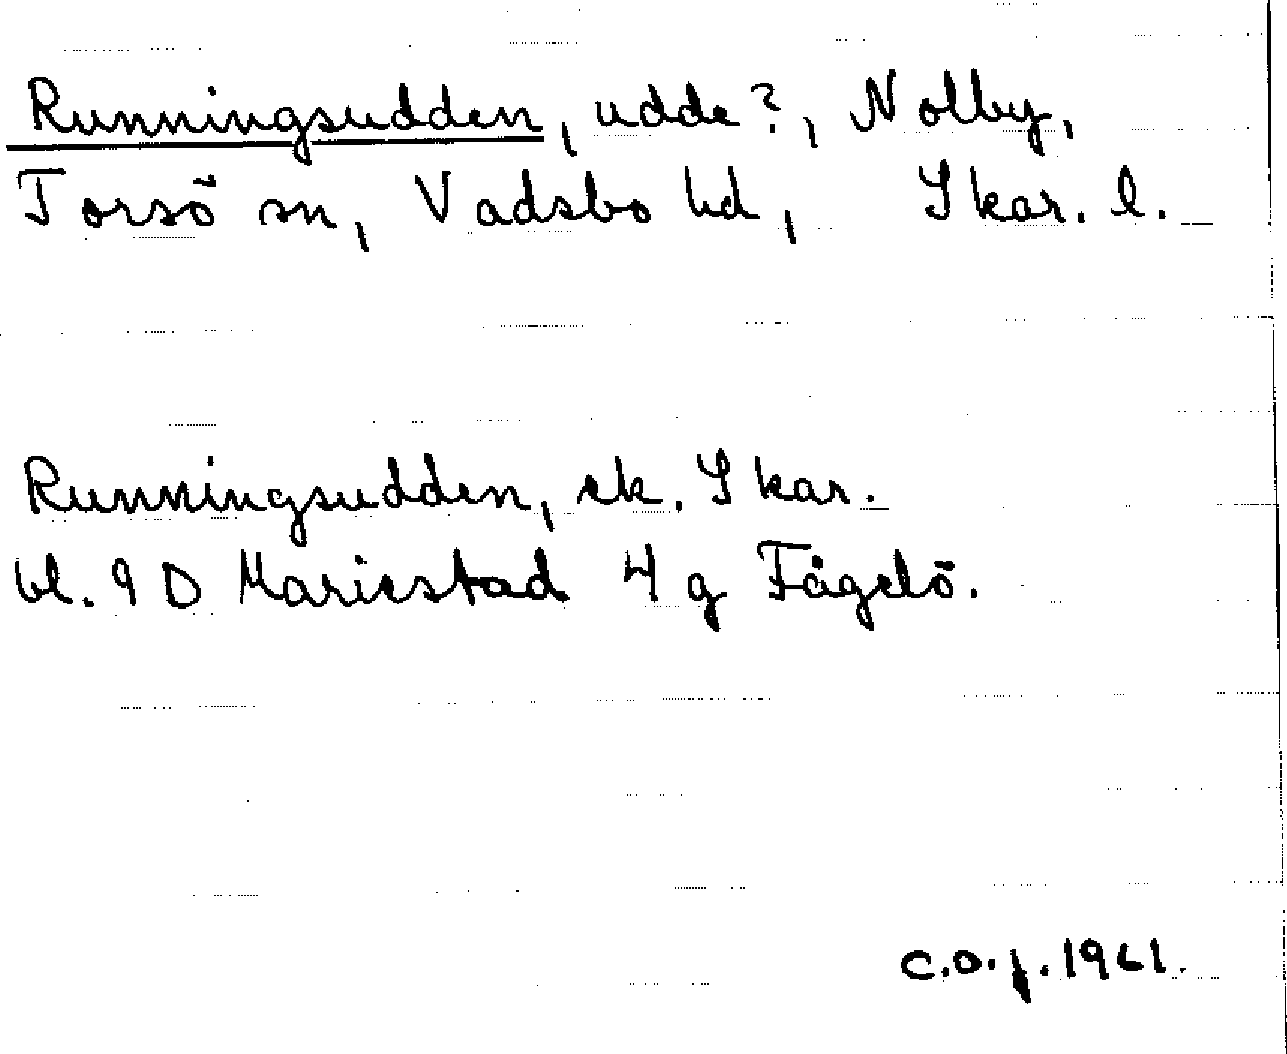 Runningsudden, udde?, Nolby,
Torsö sn, Vadsbo hd, Skar. l.
Runningsudden, ek. Skar.
bl. 9 D Mariestad 4 g Fågelö.
C.O.J. 1961.